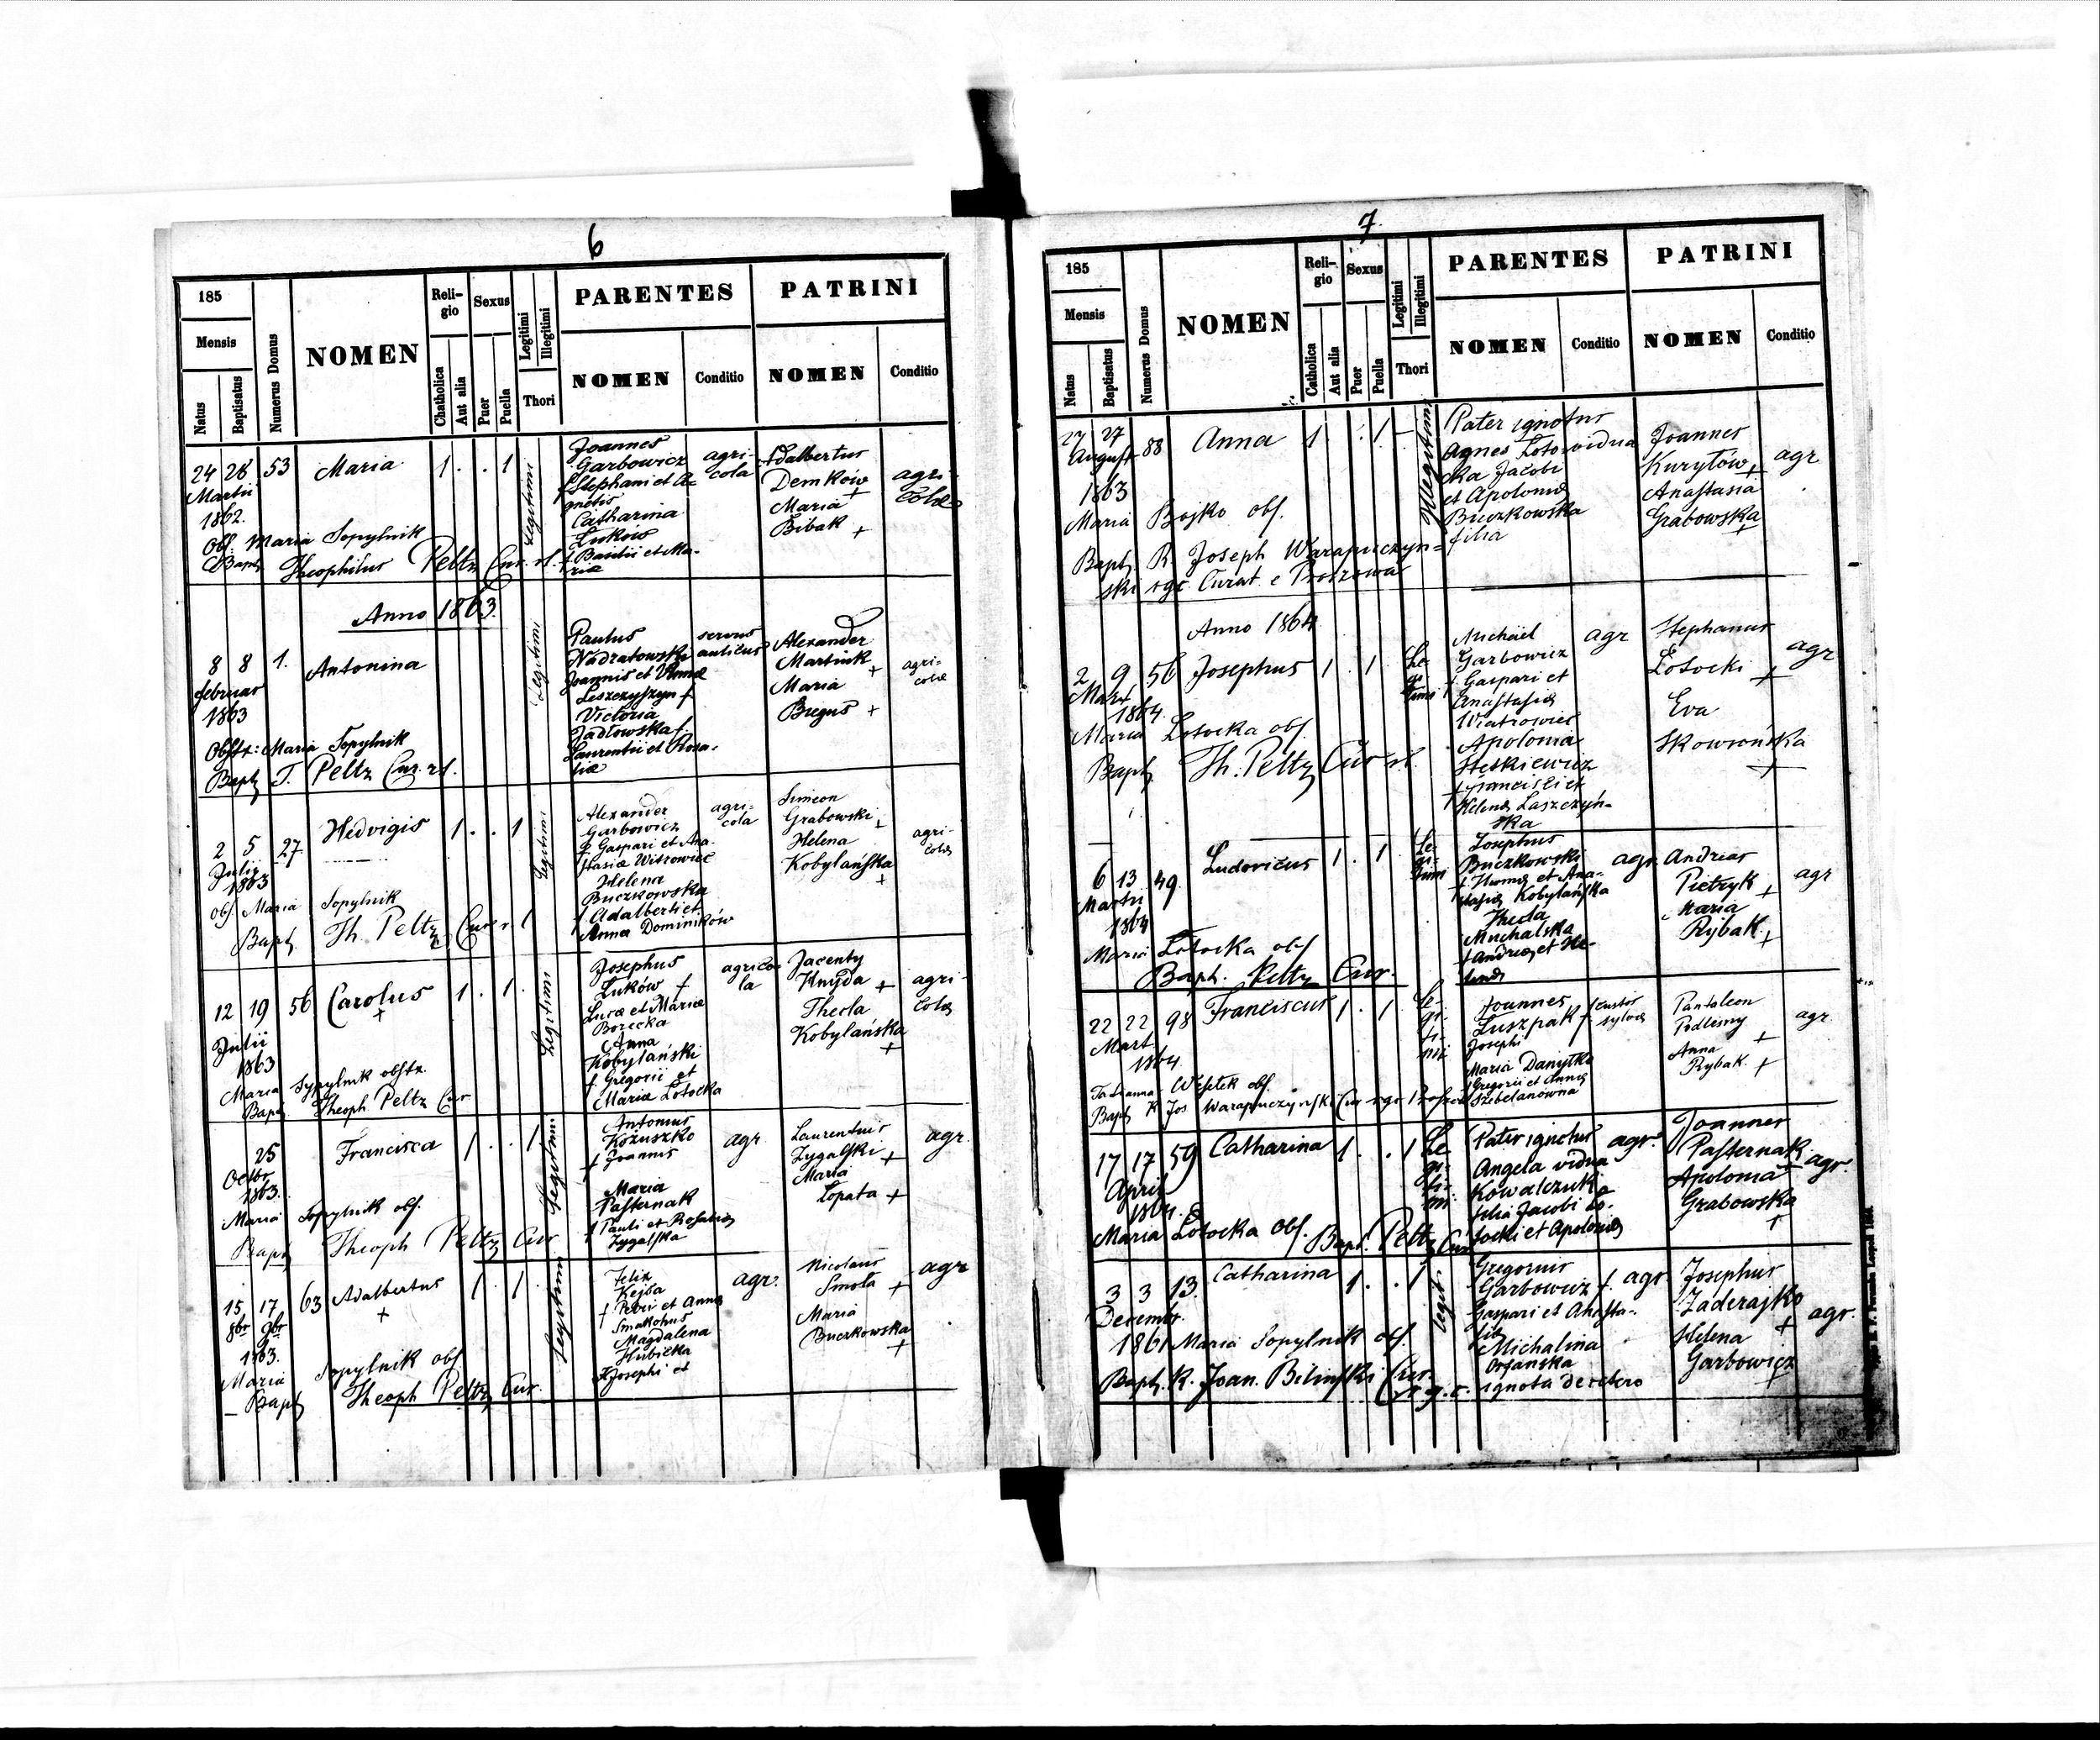 6
185
Mensis
Natus
Baptisatus
Numerus Domus
NOMEN
Reli-
gio
Chatholica
Aut alia
Sexus
Puer
Puella
Legitimi
Illegitimi
Thori
PARENTES
NOMEN
Conditio
PATRINI
NOMEN
Conditio
24 26 53 Maria 1 . . 1
Martii
1862.
Legitimi
Joannes
Garbowicz
Stephani et A-
gnetis
Catharina
Lukois
Basilii et Ma-
ria
agri-
cola
Adalbertus
Demków +
Maria
Bibak +
agri-
colæ
Obs. Maria Sopylnik
Bapt Theophilus Peltz Cur. rl.
Anno 1863.
8 8 1. Antonina
februar
1863
Legitimi
Paulus
Nadratowski
Joannis et Annæ
Leszczyszyn +
Victoria
Jadłowska
Laurentii et Rosa-
liæ
servus
aulicus
Alexander
Martiuk +
Maria
Breguś +
agri-
colæ
Obstr: Maria Sopylnik
Bapt T. Peltz Cur. rl.
2 5 27. Hedvigis 1 . . 1
Julii
1863
Legitimi
Alexander
Garbowicz
+ Gaspari et Ana-
stasiæ Witrowiec
Helena
Buczkowska
+ Adalberti et
Annæ Dominików
agri-
cola
Simeon
Grabowski +
Helena
Kobylańska
+
agri-
colæ
Obs. Maria Sopylnik
Bapt Th. Peltz Cur r l
12 19 56 Carolus 1 . 1 .
+
Julii
1863
Legitimi
Josephus
Luków +
Lucæ et Mariæ
Borecka
Anna
Kobylański
+ Gregorii et
Mariæ Łotocka
agrico-
la
Jacenty
Knyda +
Thecla
Kobylańska
+
agri-
colæ
Maria Sypylnik obstr.
Bapt Theoph. Peltz Cur
25 Francisca 1 . . 1
Octobr
1863.
Legitimi
Antonius
Kożuszko
+ Joannis
Maria
Pasternak
+ Pauli et Rosaliæ
Zygalska
agr.
Laurentius
Zygalski +
Maria
Łopata +
agr.
Maria Sopylnik obs.
Bapt Theoph Peltz Cur
15 17 63 Adalbertus 1 . 1 .
+
8br 9br
1863.
Legitimi
Felix
Kejsa
+ Petri et Annæ
Smakohus
Magdalena
Hubicka
+ Josephi et
agr.
Nicolaus
Smoła +
Maria
Buczkowska
+
agr
Maria Sopylnik obs
Bapt Theoph Peltz Cur.
7.
185
Mensis
Natus
Baptisatus
Numerus Domus
NOMEN
Reli-
gio
Catholica
Aut alia
Sexus
Puer
Puella
Legitimi
Illegitimi
Thori
PARENTES
NOMEN
Conditio
PATRINI
NOMEN
Conditio
27 27 88 Anna 1 . . 1
August
1863
Illegitimi
Pater ignotus
Agnes Łoto- vidua
cka Jacobi
et Apoloniæ
Buczkowska
filia
Joannes
Kurytów +
Anastasia
Grabowska
+
agr
Maria Bojko obs.
Bapt. R. Joseph Warapuczyn-
ski rgc Curat. e
Anno 1864
2 9 56 Josephus 1 . 1
Mart
1864.
Le-
gi-
timi
Michael
Garbowicz
+ Gaspari et
Anastasiæ
Wiatrowiec
Apolonia
Steskiewicz
+ francisci et
Helenæ Laszczyń-
ska
agr
Stephanus
Łotocki +
Eva
Skowrońska
+
agr
Maria Łotocka obs.
Bapt Th. Peltz Cur rl.
6 13 49. Ludovicus 1 . 1
Martii
1864
Le-
gi-
timi
Josephus
Buczkowski
+ Thomæ et Ana-
stasiæ Kobylańska
Thecla
Muchalska
+ Andreæ et He-
lenæ
agr.
Andreas
Pietryk +
Maria
Rybak +
agr
Maria Łotocka obs
Bapt. Peltz Cur.
22 22 98 Franciscus 1 . 1
Mart.
1864.
Le-
gi-
ti-
mi
Joannes
Łuszpak +
Josephi
Maria Danytko
+ Gregorii et Annæ
Szebelanowna
custos
sylvæ
Pantaleon
Podlesny
+
Anna
Rybak. +
agr.
Tatianna Wesełek obs.
Bapt R Jos Warapuczynski Cur rgc
17 17 59 Catharina 1 . . 1
April
1864.
Le-
gi-
ti-
mi
Pater ignotus
Angela vidua
Kowalczuk
filia Jacobi Ło-
tocki et Apoloniæ
agr.
Joannes
Pasternak
Apolonia +
Grabowska
+
agr.
Maria Łotocka Obs. Bapt. Peltz Cur
3 3 13. Catharina 1 . . 1
Decembr.
1864
Legit.
Gregorius
Garbowicz +
Gaspari et Anasta-
siæ
Michalina
Orjanska
ignota de cetero
agr.
Josephus
Zaderajko
+
Helena
Garbowicz
+
agr.
Maria Sopylnik obs.
Bapt. R. Joan. Bilinski Cur.
r. g. c.